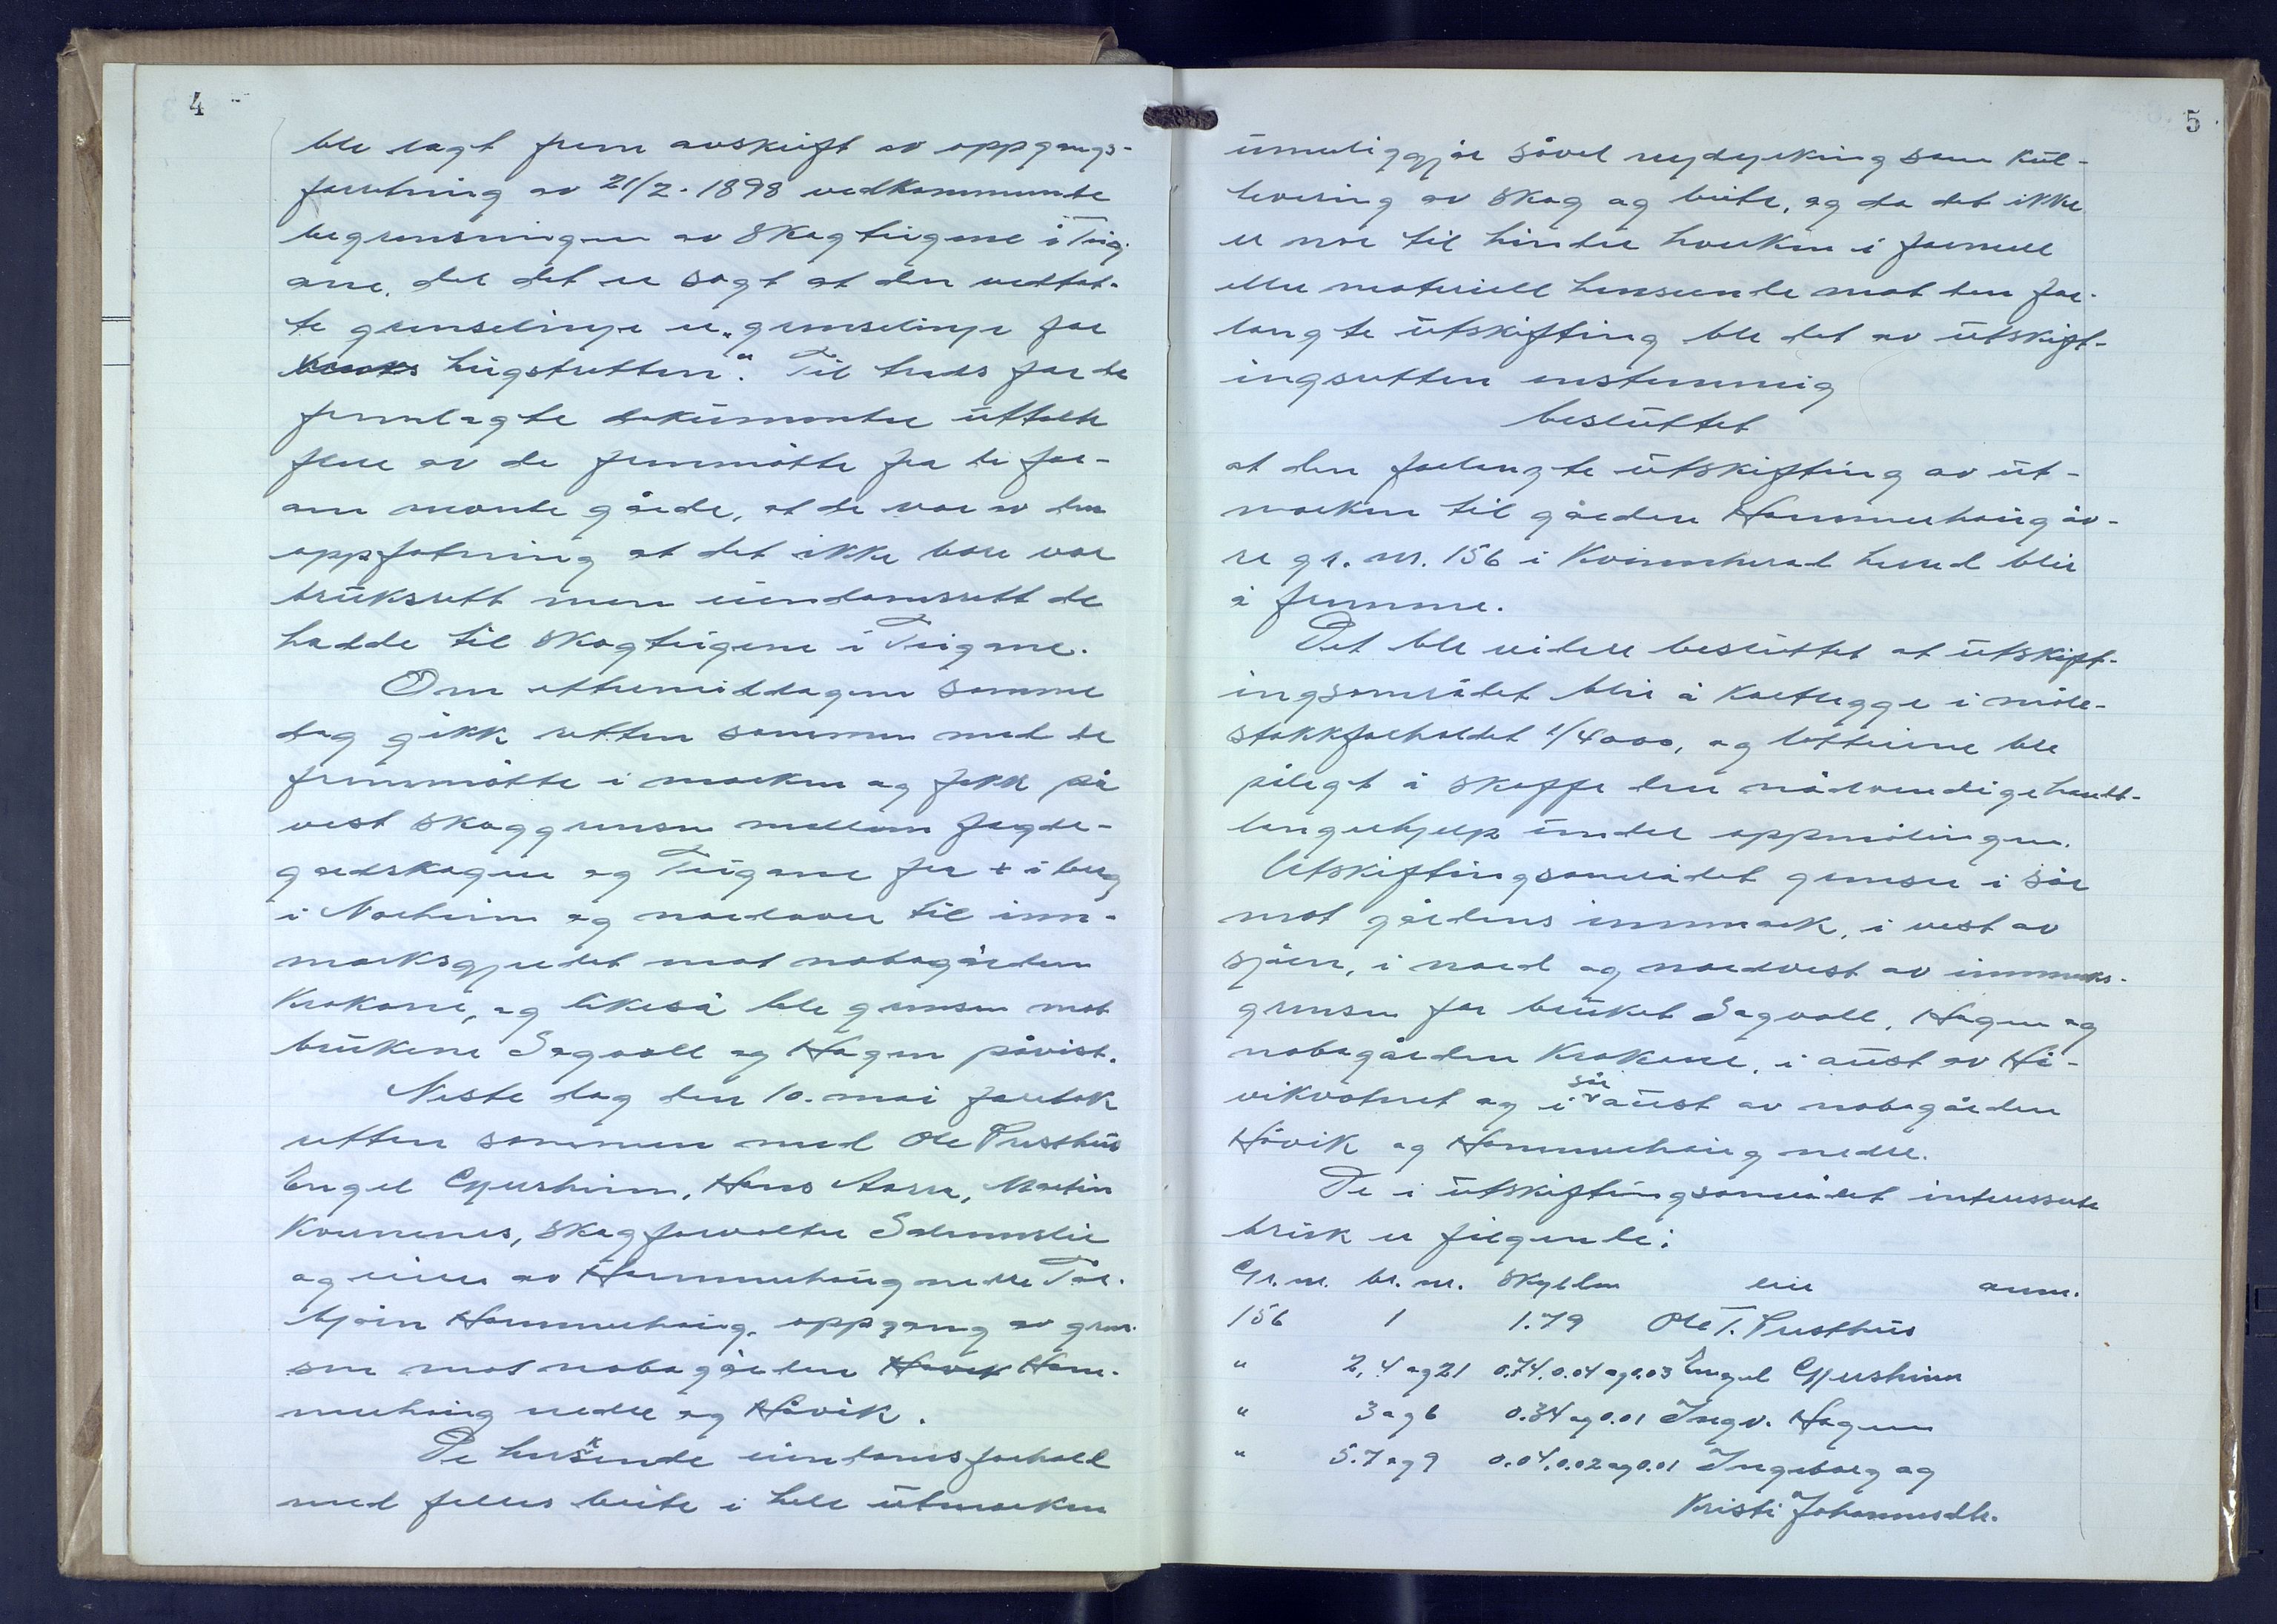 4
ble lagt frem avskrift av oppgangs-
forretning av 21/2. 1898 vedkommende
begrensningen av Skogteigene i Teig-
ane, der det er sagt at den vedtat-
te grenselinje er „grenselinje for
hugstretten". Til tross for de
fremlagte dokumenter uttalte
flere av de fremmøtte fra de for-
an nevnte gårde, at de var av den
oppfatning at det ikke bare var
bruksrett men eiendomsrett de
hadde til Skogteigene i Teigane.
Om ettermiddagen samme
dag gikk retten sammen med de
fremmøtte i marken og fikk på
vist skoggrensen mellem
gardskogen og Teigane fra + i berg
i Norheim og nordover til inn-
marksgjerdet mot nabogården
Krokane, og likeså ble grensen mot
brukene Sagvoll og Hagen påvist.
Neste dag den 10. mai foretok
retten sammen med Ole Presthus
Engel Gjersheim, Hans Aarra, Martin
Kvernenes, Skogforvalter
og eier av Hammerhaug nedre Tor-
bjørn Hammerhaug, oppgang av gren-
sen mot nabogården Håvik Ham-
merhaug nedre og Håvik.
De herskende eiendomsforhold
med felles beite i hele utmarken
5
umuliggjør såvel nydyrking som kul-
tivering av Skog og beite, og da det ikke
er noe til hinder hverken i formell
eller materiell henseende mot den for-
langte utskifting ble det av utskift-
ingsretten enstemmig
besluttet
at den forlangte utskifting av ut-
marken til gården Hammerhaug øv-
re gr. nr. 156 i Kvinnherad herred blir
å fremme.
Det ble videre besluttet at utskift-
ingsområdet blir å kartlegge i måle-
stokkforholdet 1/4000, og lotteierne ble
pålegt å skaffe den nødvendige hant-
langerhjelp under oppmålingen.
Utskiftingsområdet grenser i sør
mot gårdens innmark, i vest av
sjøen, i nord og nordvest av innmarks-
grensen for bruket Sagvoll, Hagen og
nabogården Krokane, i aust av Hå-
vikvatnet og i søraust av nabogården
Håvik og Hammerhaug nedre.
De i utskiftingsområdet interesserte
bruk er følgende:
Gr. nr. br. nr. Skylden eier anm.
156 1 1.79 Ole T. Presthus
" 2, 4 og 21 0.74, 0.04 og 0.03 Engel Gjersheim
" 3 og 6 0.34 og 0.01 Ingv. Hagen
" 5.7 og 9 0.04, 0.02 og 0.01 Ingeborg og
Kristi Johannesdtr.